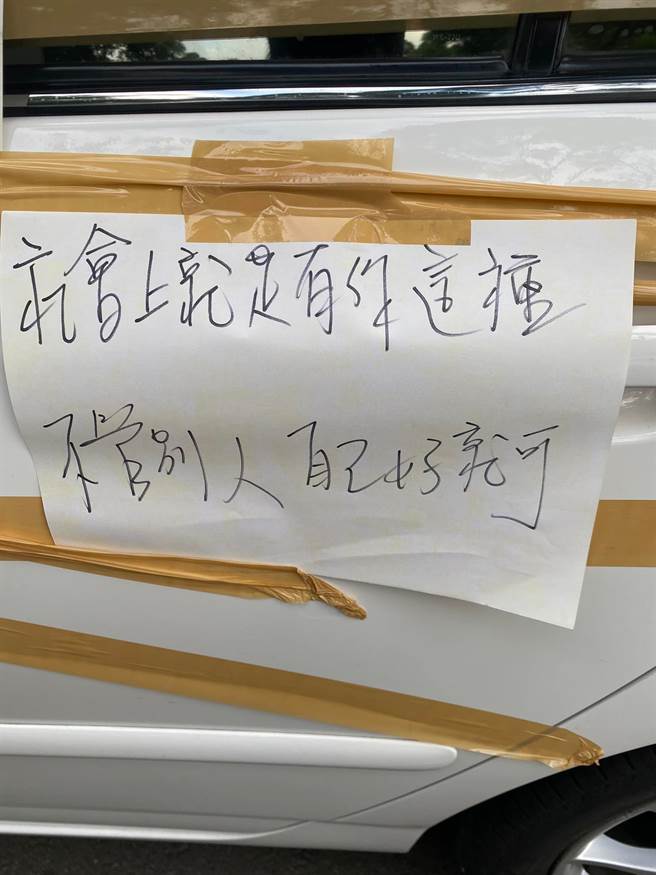 社會上就是有你這種
不管別人 自己好就可